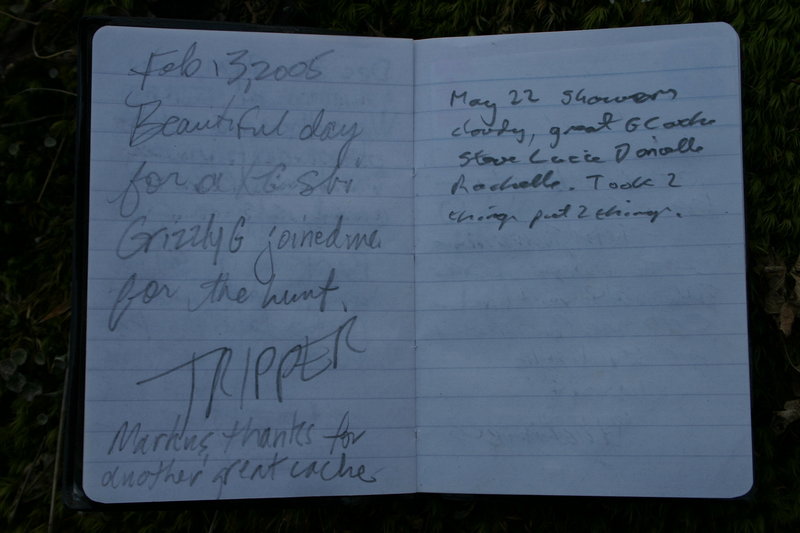 Feb 13, 2005
Beautiful day
for a XC ski
GrizzlyG joined me
for the hunt.
TRIPPER
Markus, thanks for
another great cache
May 22 showers
cloudy, great GCache
Steve Lucie Danielle
Rachelle. Took 2
things put 2 things.